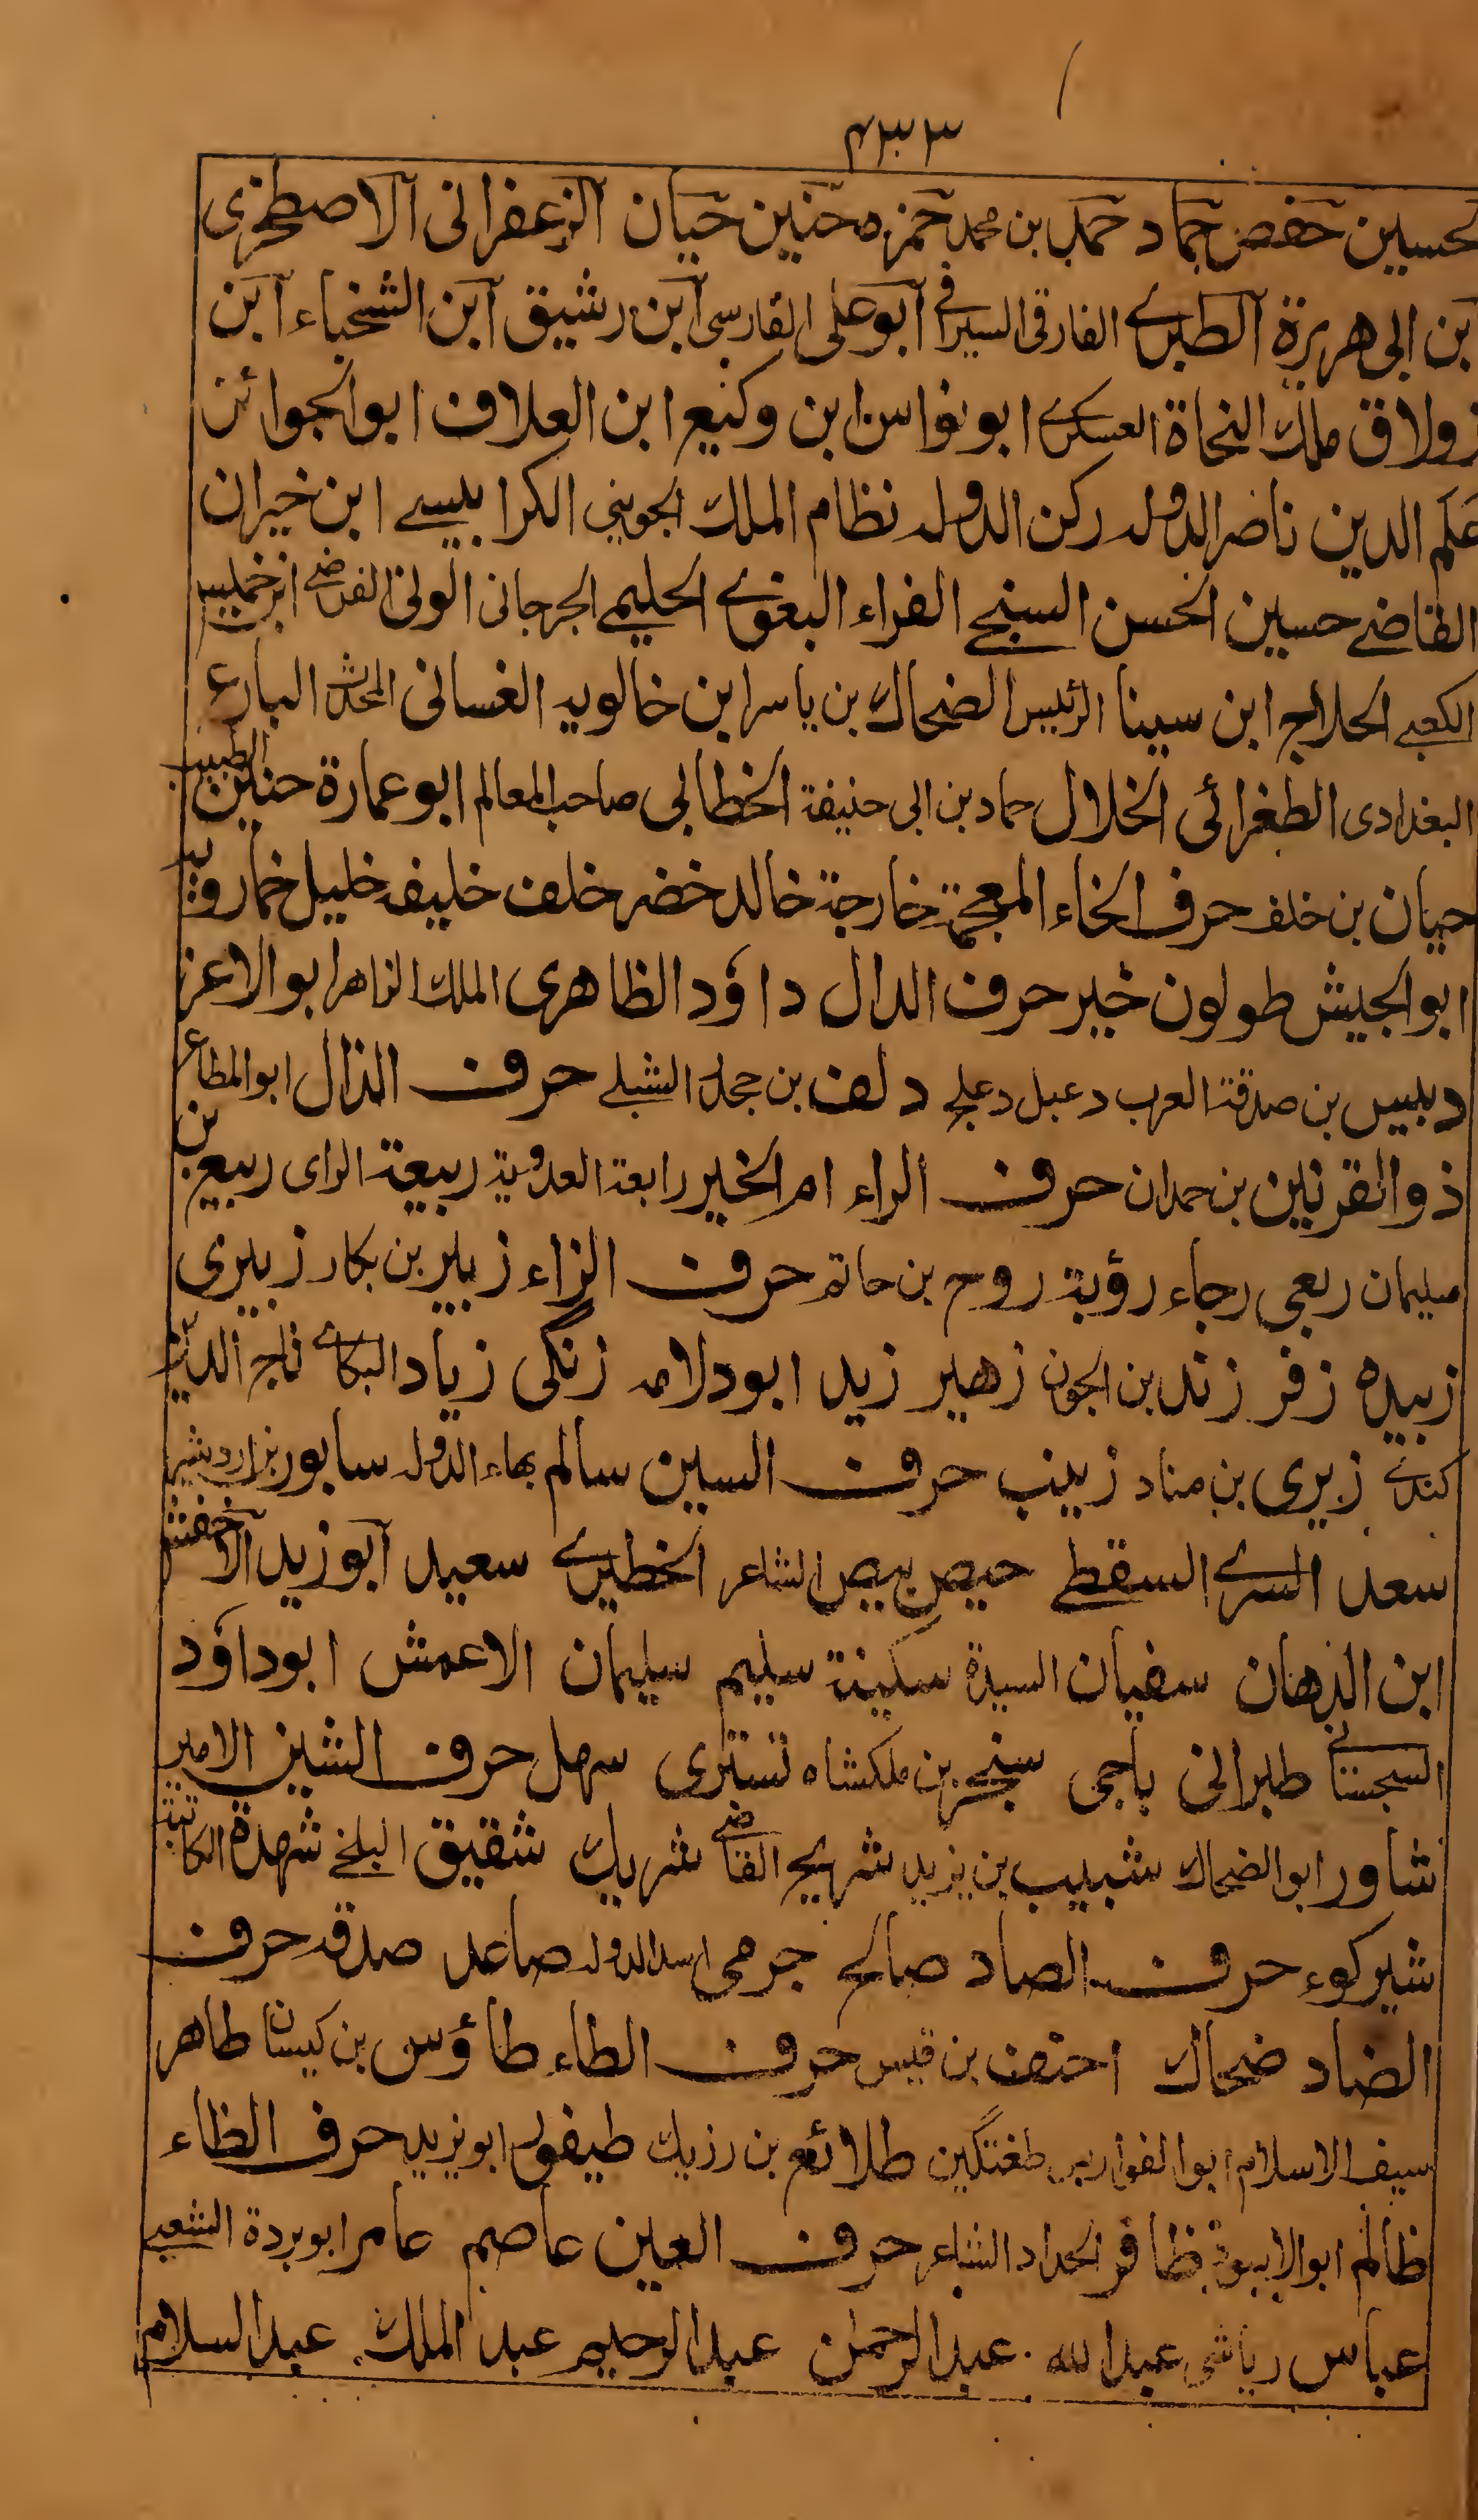 ٤٣٣
لحسين حفص حماد حمد بن محمد حمزه حنين حيان الزعفرانى الاصطخرى
ابن ابى هريرة الطبرے الفارقى السيرافى ابو على الفارسى ابن رشيق ابن الشخباء ابن
زولاق ملك النحاة العسكرے ابو نواس ابن وكنيع ابن العلاف ابو الجوائز
علم الدين ناصر الدوله ركن الدوله نظام الملك الجوينى الكرابيسے ابن خيران
القاضے حسين الحسن السنجے الفراء البغوے الحليمے الجرجانى الولى الفرضے ابن خميس
الكعبے الحلاج ابن سينا الرئيس الضحاك بن ياسر ابن خالويه الغسانى المحدث البارع
البغدادى الطغرائى الخلال حماد بن ابى حنيفة الخطابى صاحب المعالم ابو عمارة حنين الطبيب
حيان بن خلف حرف الخاء المعجمة خارجة خالد خضر خلف خليفه خليل خمارويه
ابو الجيش طولون خير حرف الدال داؤد الظاهرى الملك الزاهر ابو الاعز
دبيس بن صدقة العرب دعبل دعلج دلف بن جحدر الشبلے حرف الذال ابو المطاع
ذو القرنين بن حمدان حرف الراء ام الخير رابعة العدوية ربيعة الراى ربيع بن
سليمان ربعى رجاء رؤبة روح بن حاتم حرف الزاء زبير بن بكار زبيرى
زبيده زفر زند بن الجون زهير زيد ابو دلامه زنگى زياد البكائے تاج الدين
كندے زيرى بن مناد زينب حرف السين سالم بهاء الدوله سابور بن اردشير
سعد السرے السقطے حيص بيص الشاعر الخطيرے سعيد ابو زيد الاخفش
ابن الدهان سفيان السيدة سكينة سليم سليمان الاعمش ابوداؤد
السجستانے طبرانى باجى سنجر بن ملكشاه تسترى سهل حرف الشين الامير
شاور ابو الضحاك شبيب بن يزيد شريح القاضے شريك شقيق البلخے شهدة الكاتبة
شيركوء حرف الصاد صالح جرمى اسد الدوله صاعد صدقه حرف
الضاد ضحاك احنف بن قيس حرف الطاء طاؤس بن كيسان طاهر
سيف الاسلام ابو الفوارس طغتگين طلائع بن رزيك طيفور ابو يزيد حرف الظاء
ظالم ابو الاسود ظافر الحداد الشاعر حرف العين عاصم عامر ابو بردة الشعبے
عباس رياشى عبد الله عبد الرحمن عبد الرحيم عبد الملك عبد السلام